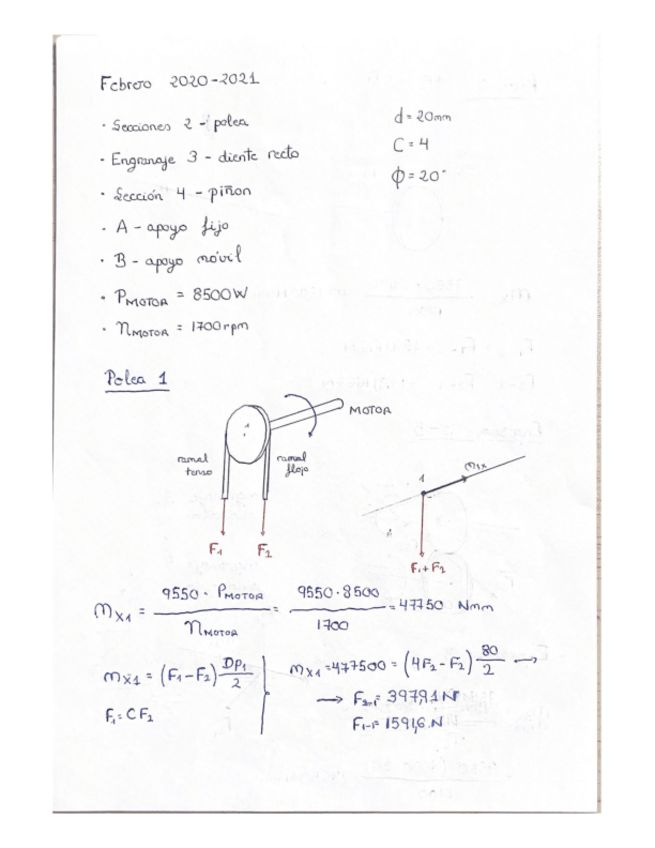 Febrero 2020-2021
· Secciones 2 - polea
d = 20mm
· Engranaje 3 - diente recto
C = 4
· Sección 4 - piñon
ϕ = 20°
· A - apoyo fijo
· B - apoyo móvil
· PMOTOR = 8500W
· ηMOTOR = 1700rpm
Polea 1
MOTOR
1
ramal tenso
ramal flojo
F1 F2
1
M1x
F1+F2
Mx1 = 9550 · PMOTOR / ηMOTOR = 9550·8500 / 1700 = 47750 Nmm
Mx1 = (F1-F2) Dp1 / 2
F1 = CF2
Mx1 = 477500 = (4F2 - F2) 80 / 2 →
→ F2-1 = 3979,1 N
F1-1 = 1591,6 N